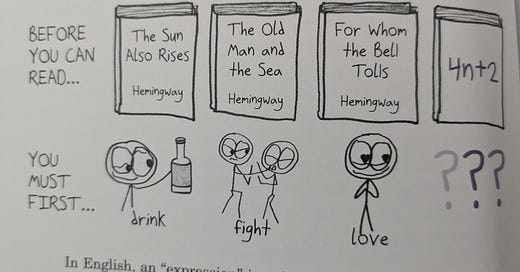 BEFORE
YOU CAN
READ...
The Sun
Also Rises
Hemingway
The Old
Man and
the Sea
Hemingway
For Whom
the Bell
Tolls
Hemingway
4n+2
YOU
MUST
FIRST...
drink
fight
love
???
In English, an "expression"